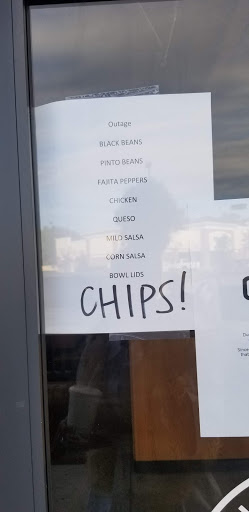 Outage
BLACK BEANS
PINTO BEANS
FAJITA PEPPERS
CHICKEN
QUESO
MILD SALSA
CORN SALSA
BOWL LIDS
CHIPS!